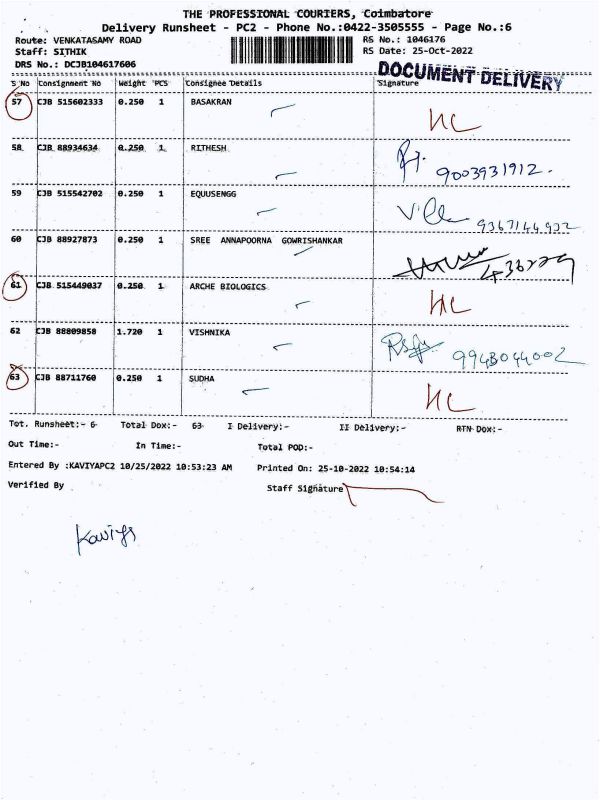 THE PROFESSIONAL COURIERS, Coimbatore
Delivery Runsheet - PC2 - Phone No.:0422-3505555 - Page No.:6
Route: VENKATASAMY ROAD RS No.: 1046176
Staff: SITHIK RS Date: 25-Oct-2022
DRS No.: DCJB104617606
DOCUMENT DELIVERY
S No Consignment No Weight PCS Consignee Details Signature
57 CJB 515602333 0.250 1 BASAKRAN NC
58 CJB 88934634 0.250 1 RITHESH 9003931912.
59 CJB 515542702 0.250 1 EQUUSENGG 9367144932
60 CJB 88927873 0.250 1 SREE ANNAPOORNA GOWRISHANKAR
61 CJB 515449037 0.250 1 ARCHE BIOLOGICS NC
62 CJB 88809858 1.720 1 VISHNIKA 9948044002
63 CJB 88711760 0.250 1 SUDHA NC
Tot. Runsheet:- 6 Total Dox:- 63 I Delivery:- II Delivery:- RTN Dox:-
Out Time:- In Time:- Total POD:-
Entered By :KAVIYAPC2 10/25/2022 10:53:23 AM Printed On: 25-10-2022 10:54:14
Verified By Staff Signature